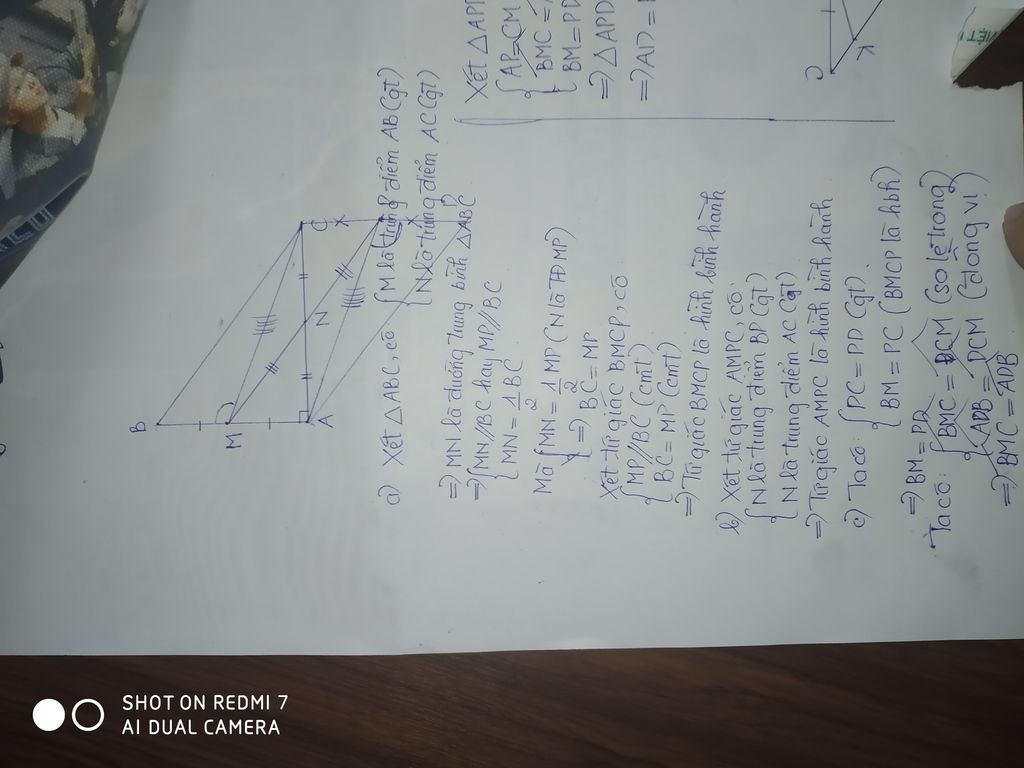 B
M
A
N
C
P
D
a) Xét △ABC, có { M là trung điểm AB (gt)
N là trung điểm AC (gt)
=> MN là đường trung bình △ABC
=> { MN//BC hay MP//BC
MN = 1/2 BC
Mà { MN = 1/2 MP (N là TĐ MP)
=> BC = MP
Xét tứ giác BMCP, có
{ MP//BC (cmt)
BC = MP (cmt)
=> Tứ giác BMCP là hình bình hành
b) Xét tứ giác AMPC, có:
{ N là trung điểm BP (gt)
N là trung điểm AC (gt)
=> Tứ giác AMPC là hình bình hành
c) Ta có: { PC = PD (gt)
BM = PC (BMCP là hbh)
=> BM = PD
Ta có: { BMC = DCM (so le trong)
ADB = DCM (đồng vị)
=> BMC = ADB
Xét △APD
{ AP = CM
BMC =
BM = PD
=> △APD
=> AD =
C
K
SHOT ON REDMI 7
AI DUAL CAMERA